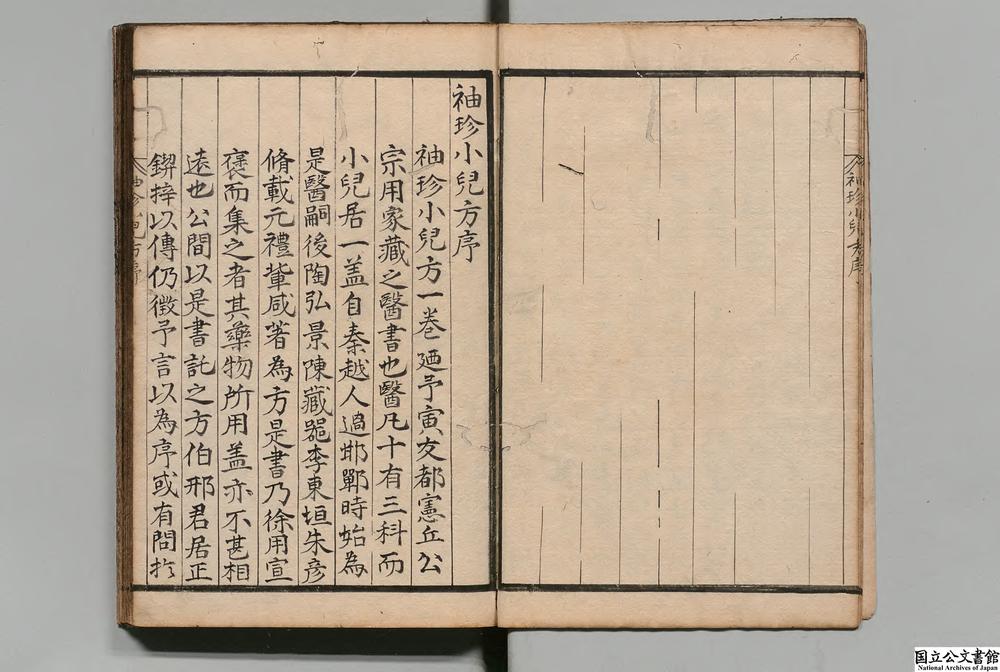 袖珍小兒方序
袖珍小兒方序
袖珍小兒方一卷廼予寅友都憲丘公
宗用家藏之醫書也醫凡十有三科而
小兒居一盖自秦越人過邯鄲時始為
是醫嗣後陶弘景陳藏噐李東垣朱彦
脩戴元禮軰咸著為方是書乃徐用宣
褒而集之者其藥物所用盖亦不甚相
遠也公間以是書託之方伯邢君居正
鍥梓以傳仍徵予言以為序或有問扵
袖珍小兒方序
国立公文書館
National Archives of Japan